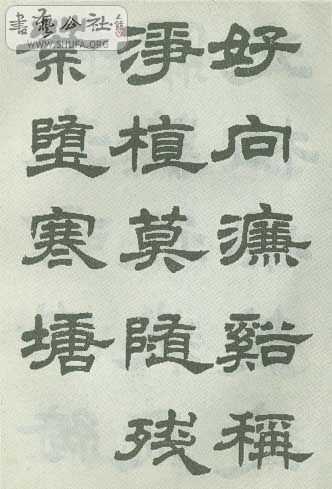 書藝公社
WWW.SHUFA.ORG
好向濂谿稱
淨植莫隨残
葉墮寒塘